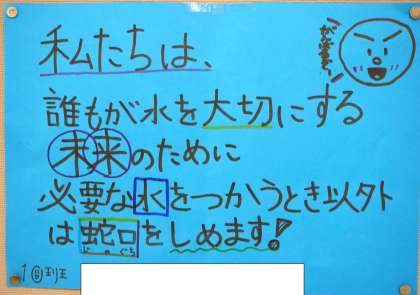 私たちは、
がんばるぞ~!
誰もが水を大切にする
未来のために
必要な水をつかうとき以外
は蛇口をしめます!
じゃぐち
1⑥班